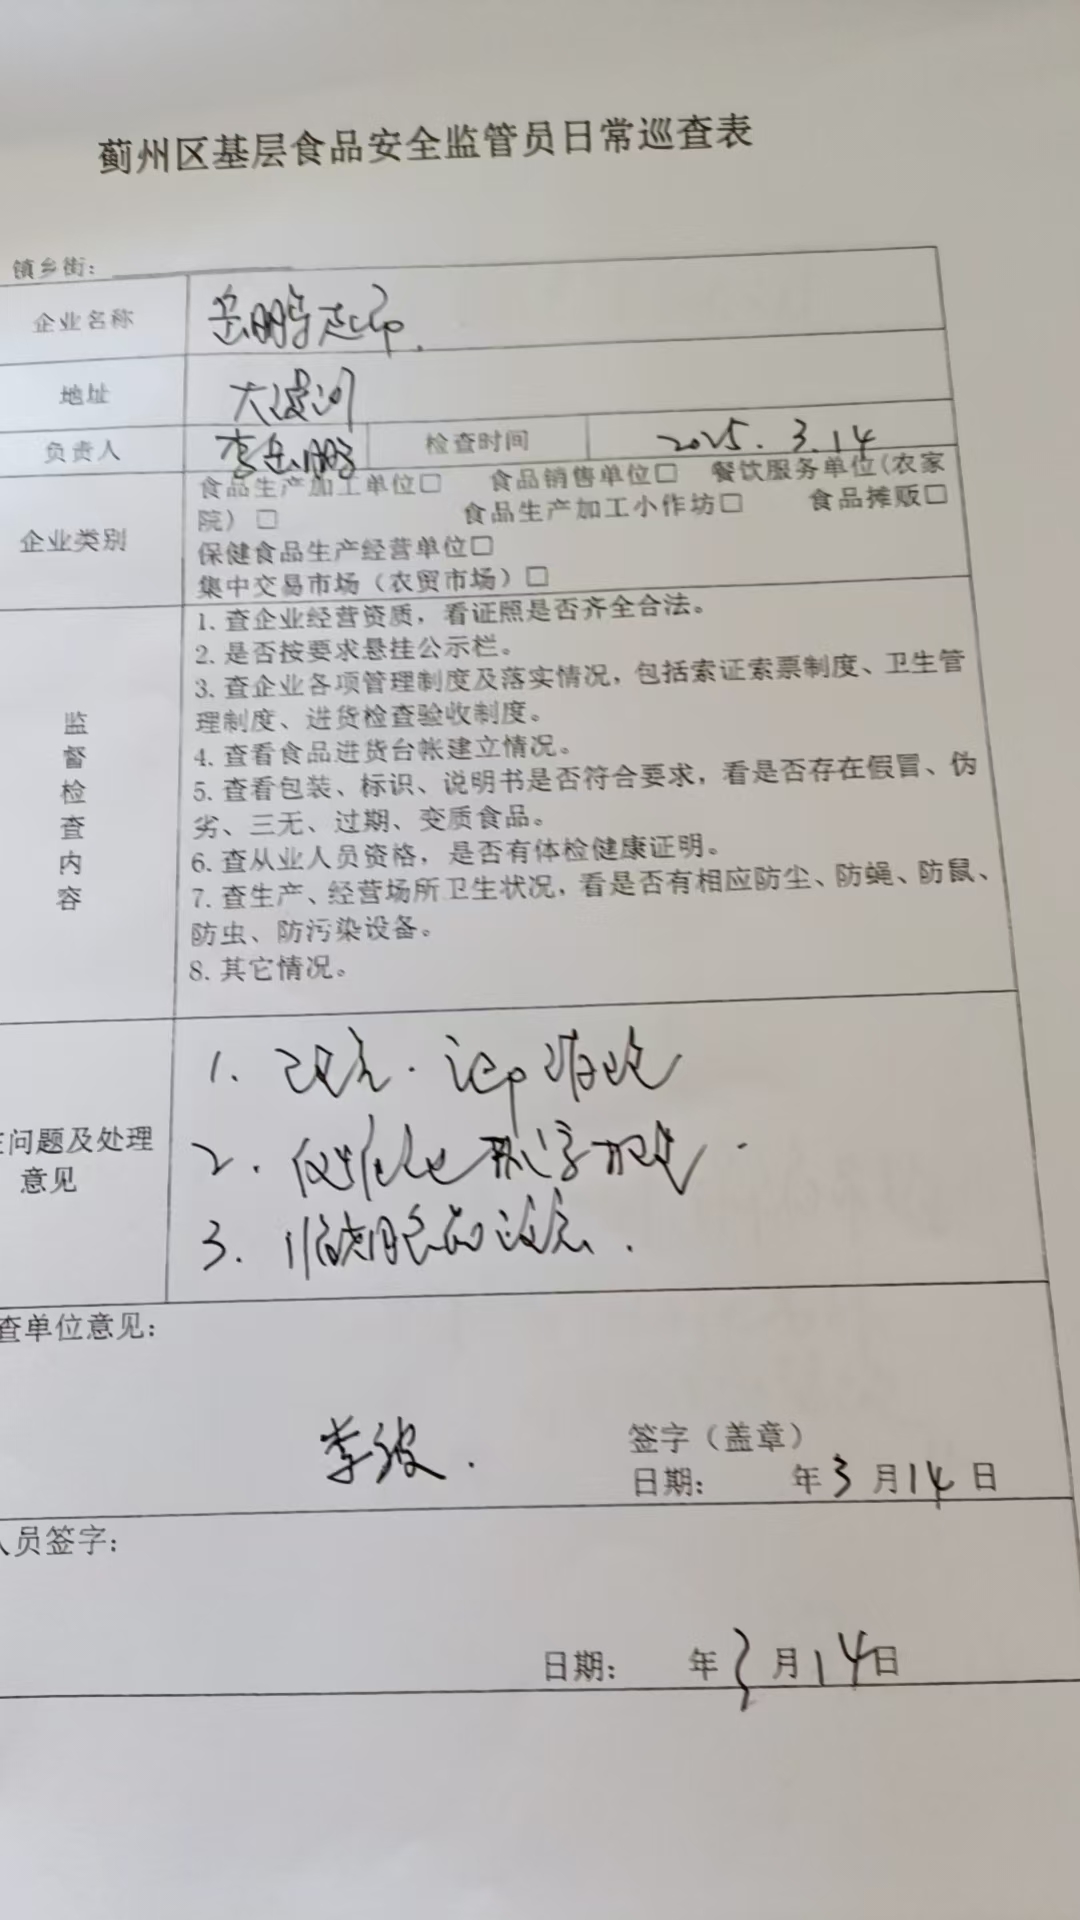 蓟州区基层食品安全监管员日常巡查表
镇乡街：
企业名称 岳鹏超市.
地址 大漫河
负责人 李岳鹏 检查时间 2025.3.14
企业类别 食品生产加工单位□ 食品销售单位□ 餐饮服务单位(农家
院）□ 食品生产加工小作坊□ 食品摊贩□
保健食品生产经营单位□
集中交易市场（农贸市场）□
监督检查内容
1. 查企业经营资质，看证照是否齐全合法。
2. 是否按要求悬挂公示栏。
3. 查企业各项管理制度及落实情况，包括索证索票制度、卫生管
理制度、进货检查验收制度。
4. 查看食品进货台帐建立情况。
5. 查看包装、标识、说明书是否符合要求，看是否存在假冒、伪
劣、三无、过期、变质食品。
6. 查从业人员资格，是否有体检健康证明。
7. 查生产、经营场所卫生状况，看是否有相应防尘、防蝇、防鼠、
防虫、防污染设备。
8. 其它情况。
问题及处理
意见
1.
2.
3. 临期食品
查单位意见：
李波.
签字（盖章）
日期： 年3月14日
人员签字：
日期： 年3月14日